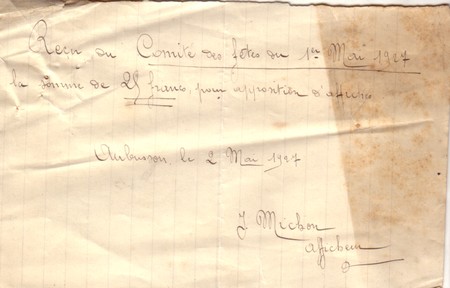 Reçu du Comité des fêtes du 1er Mai 1927
la somme de 25 francs, pour apposition d'affiches
Aubusson, le 2 Mai 1927
J Michon
afficheur